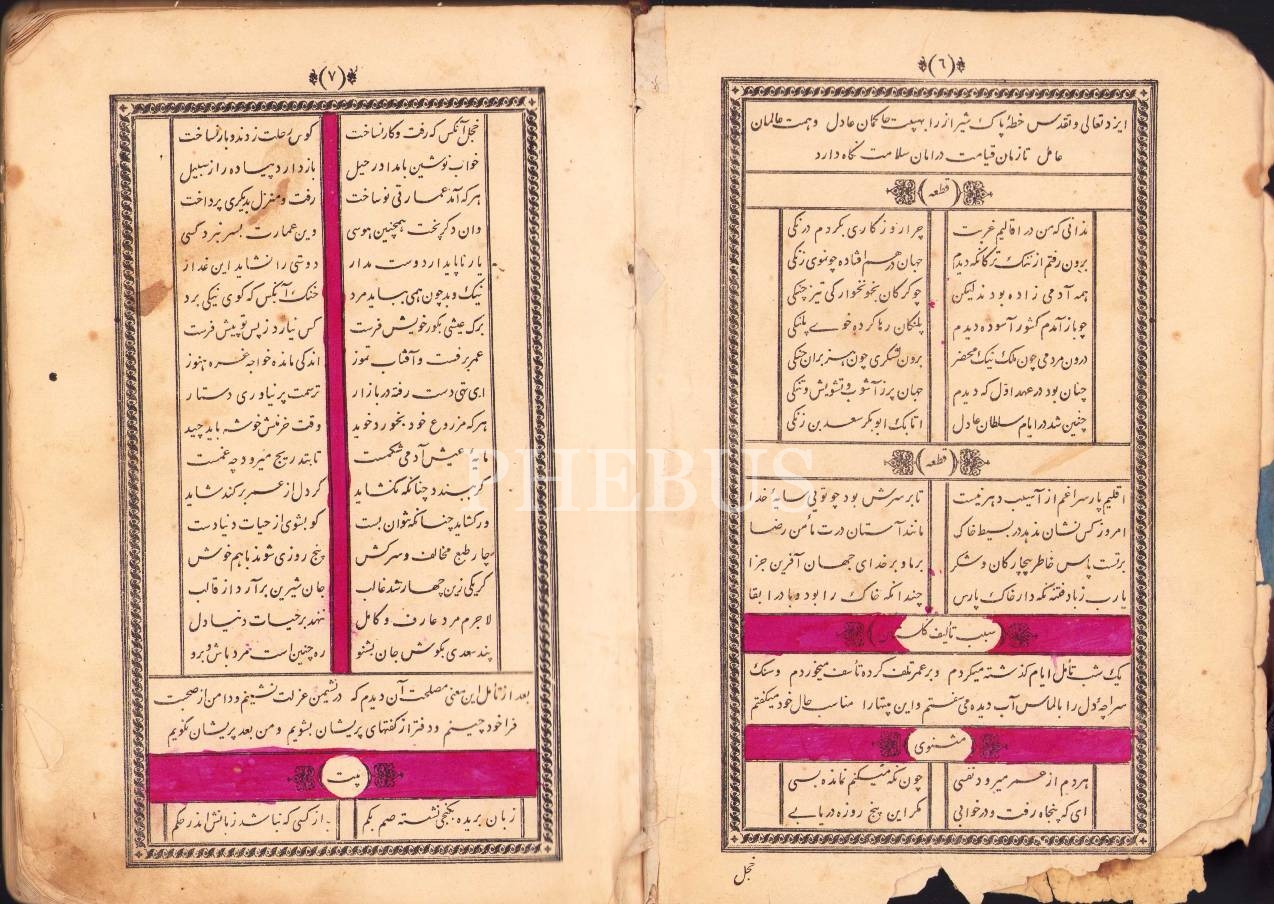 (٦)
ایزد تعالی و تقدس خطهٔ پاک شیراز را بهیبت حاکمان عادل و همت عالمان
عامل تا زمان قیامت در امان سلامت نگاه دارد
قطعه
ندانی که من در اقالیم غربت چرا روزگاری بکردم درنگی
برون رفتم از ننک ترکان که دیدم جهان درهم افتاده چو موی زنگی
همه آدمی زاده بودند لیکن چو گرگان بخونخوارگی تیز چنگی
چو باز آمدم کشور آسوده دیدم پلنگان رها کرده خوی پلنگی
درون مردمی چون ملک نیک محضر برون لشکری چون هژبران جنگی
چنان بود در عهد اول که دیدم جهان پر ز آشوب و تشویش و تنگی
چنین شد در ایام سلطان عادل اتابک ابوبکر سعد بن زنگی
قطعه
اقلیم پارس را غم از آسیب دهر نیست تا بر سرش بود چو توئی سایه خدا
امروز کس نشان ندهد در بسیط خاک مانند آستان درت مأمن رضا
بر تست پاس خاطر بیچارگان و شکر بر ما و بر خدای جهان آفرین جزا
یارب ز باد فتنه نگه دار خاک پارس چندانکه خاک را بود و باد را بقا
سبب تألیف کتاب
یک شب تأمل ایام گذشته میکردم و بر عمر تلف کرده تأسف میخوردم و سنگ
سراچهٔ دل را بالماس آب دیده می سفتم و این بیتها را مناسب حال خود میگفتم
مثنوی
هر دم از عمر میرود نفسی چون نگه میکنم نمانده بسی
ای که پنجاه رفت و در خوابی مگر این پنج روزه دریابی
خجل
(٧)
خجل آنکس که رفت و کار نساخت کوس رحلت زدند و بار نساخت
خواب نوشین بامداد رحیل باز دارد پیاده را ز سبیل
هر که آمد عمارتی نو ساخت رفت و منزل بدیگری پرداخت
وان دگر پخت همچنین هوسی وین عمارت بسر نبرد کسی
یار ناپایدار دوست مدار دوستی را نشاید این غدار
نیک و بد چون همی بباید مرد خنک آنکس که گوی نیکی برد
برگ عیشی بگور خویش فرست کس نیارد ز پس تو پیش فرست
عمر برفت و آفتاب تموز اندکی مانده خواجه غره هنوز
ای تهی دست رفته در بازار ترسمت پر نیاوری دستار
هر که مزروع خود بخورد خوید وقت خرمنش خوشه باید چید
مایه عیش آدمی شکمست تا بتدریج میرود چه غمست
گر ببندد چنانکه نگشاید گر دل از عمر برکند شاید
ور گشاید چنانکه نتوان بست گو بشوی از حیات دنیا دست
چار طبع مخالف و سرکش پنج روزی شوند با هم خوش
گر یکی زین چهار شد غالب جان شیرین برآرد از قالب
لاجرم مرد عارف و کامل ننهد بر حیات دنیا دل
پند سعدی بگوش جان بشنو ره چنین است مرد باش و برو
بعد از تأمل این معنی مصلحت آن دیدم که در نشیمن عزلت نشینم و دامن از صحبت
فراخود چینم و دفتر از گفتهای پریشان بشویم و من بعد پریشان نگویم
بیت
زبان بریده بکنجی نشسته صم بکم به از کسی که نباشد زبانش اندر حکم
PHEBUS